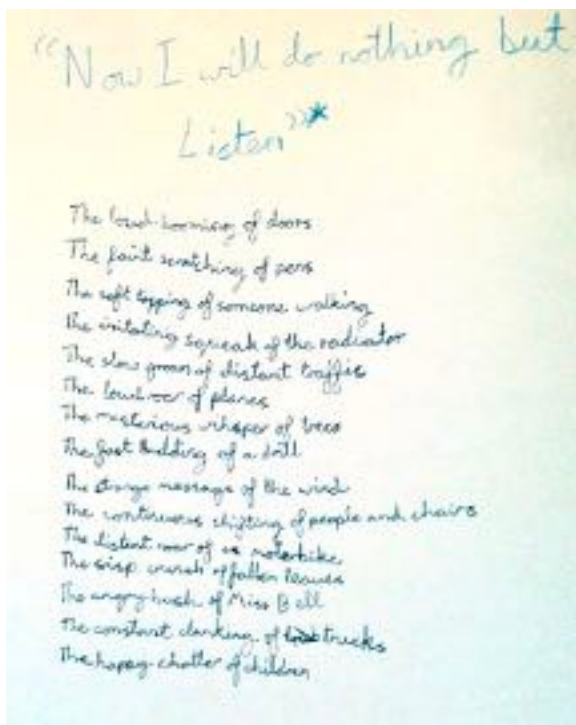 "Now I will do nothing but
Listen"*
The loud booming of doors
The faint scratching of pens
The soft tapping of someone walking
The irritating squeak of the radiator
The slow groan of distant traffic
The loud roar of planes
The mysterious whisper of trees
The fast thudding of a drill
The strange message of the wind
The continuous shifting of people and chairs
The distent roar of motorbike
The crisp crunch of fallen leaves
The angry hush of Miss Bell
The constant clanking of trucks
The happy chatter of children